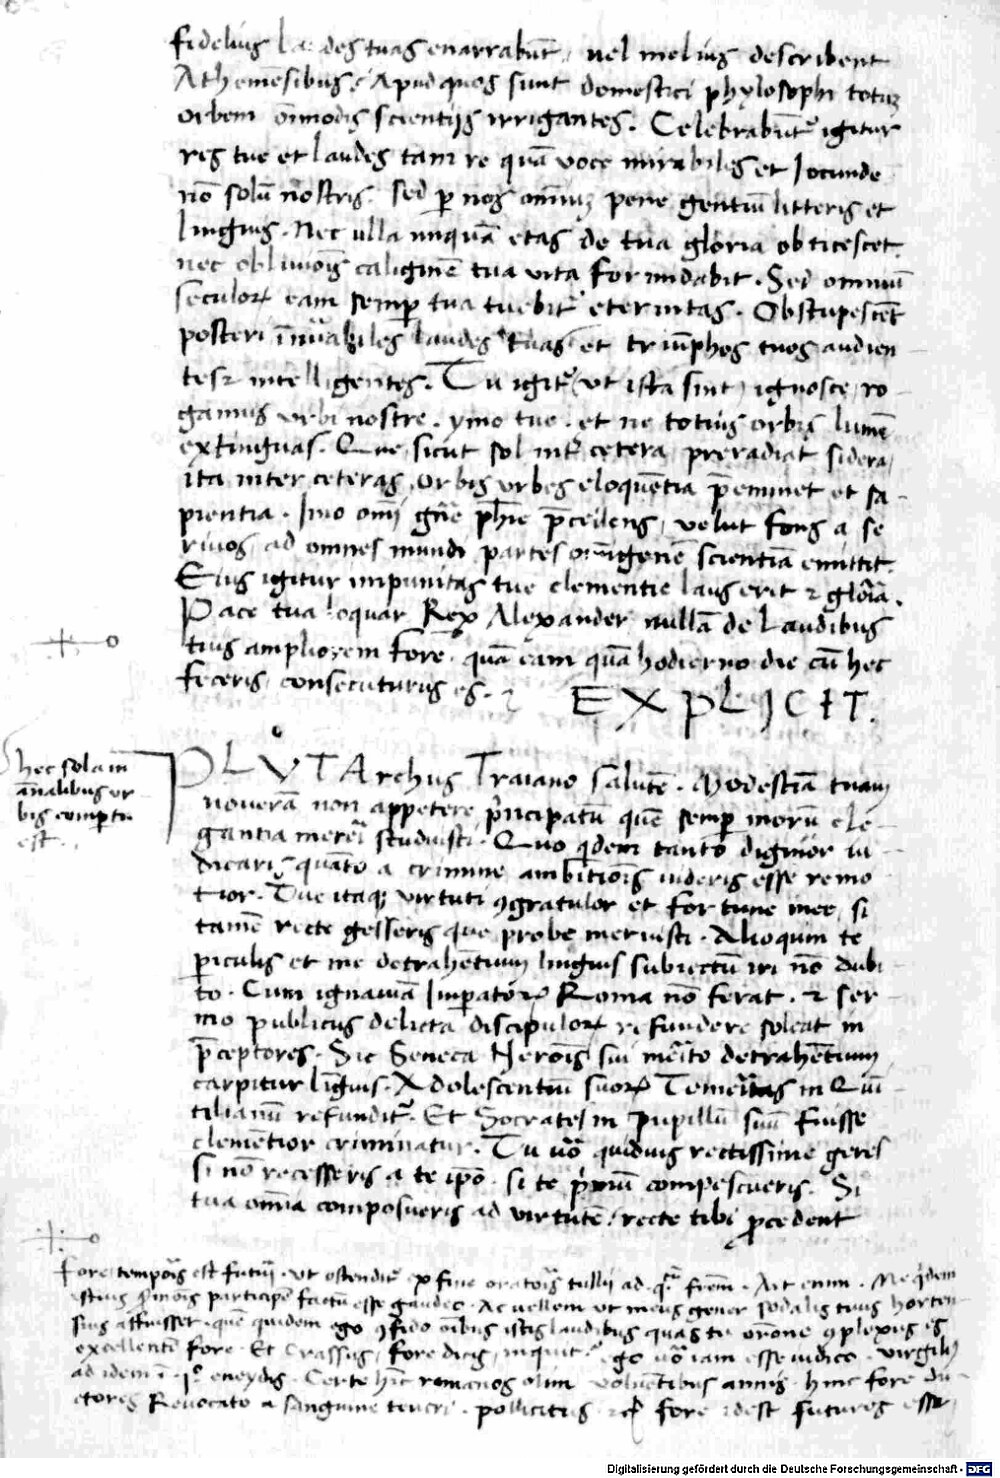 fidelius laudes tuas enarrabūt, uel melius describent
Atheniēsibus; Apud quos sunt domestici phylosophi totuʒ
orbem ōimodis scientijs irrigantes. Celebrabūt᷑ igitur
res tue et laudes tam re quā voce mirabiles et Jocunde
nō solū nostris. sed ꝑ nos omniuʒ pene gentiū litteris et
linguis. Nec ulla unquā etas de tua gloria obticescet.
nec obliuiōis caliginē tua vita formidabit. Sed omniū
seculoꝝ eam semꝑ tua tuebit᷑ eternitas. Obstupescēt
posteri laudes tuas et triūphos tuos audien
tes ⁊ intelligentes. Tu igit᷑ (ut ista sint) ignosce ro
gamus urbi nostre. ymo tue. et ne totius orbis lumē
extinguas. Que sicut sol int᷑ cetera preradiat sidera,
ita inter ceteras orbis urbes eloquētia p̄eminet et sa
pientia. Imo om̄i gn̄e ph̄ie p̄cellens, velut fons a se
riuos ad omnes mundi partes scientiā emittit.
Eius igitur impunitas tue clementie laus erit ⁊ glōia.
Pace tua loquar Rex Alexander nullā de Laudibus
tuis ampliorem fore. quā eam quā hodierno die cū hec
feceris, consecuturus es. EXPLICIT.
PLVTArchus Traiano salutē. Modestiā tuam
noueram non appetere p̄ncipatū quē semꝑ morū ele
gantia studuisti. Quo qidem tanto dignior iu
dicaris quāto a crimine ambitiōis uideris esse remo
tior. Tue itaqꝫ virtuti ꝯgratulor et fortune mee, si
tamē recte gesseris que probe meruisti. Alioquin te
ꝑiculis et me detrahētium linguis subiectū iri nō dubi
to. Cum ignauiā Imperatoꝝ Roma nō ferat. ⁊ ser
mo publicus delicta discipuloꝝ refundere soleat in
p̄ceptores. Sic Seneca Nerōis sui merito detrahētium
carpitur līguis. Adolescentiū suoꝝ Temeritas in Qui
tilianū refundit᷑. Et Socrates in Pupillū suū fuisse
clemētior criminatur. Tu uo quiduis rectissime geres
si nō recesseris a te ip̄o. si te p̄mū compescueris. Si
tua om̄ia composueris ad virtutē: recte tibi ꝓcedent
hec sola in
ānalibus ur
bis comꝑta
est.
Fore tempōis est futuri. ut ostendit᷑ ex fine oratoris tullii ad fr̄em. Ait enim. Me qidem
istius participē factū esse gaudeo. Ac uellem ut meus gener sodalis tuus horten
sius affuisset. quē quidem ego ꝯfido ōibus istis laudibus quas tu orōne ꝯplexus es
excellentē fore. Et Crassus, fore dicis, inquit: ego uo iam esse iudico. virgilius
ad idem eneydis. Certe hinc romanos olim voluētibus annis. hinc fore du
ctores Reuocato a sanguine teucri. pollicitus fore idest futuros esse,
Digitalisierung gefördert durch die Deutsche Forschungsgemeinschaft - DFG